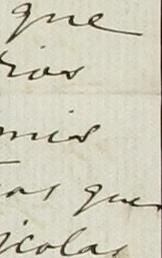 que
rios
mis
tas que
icolas